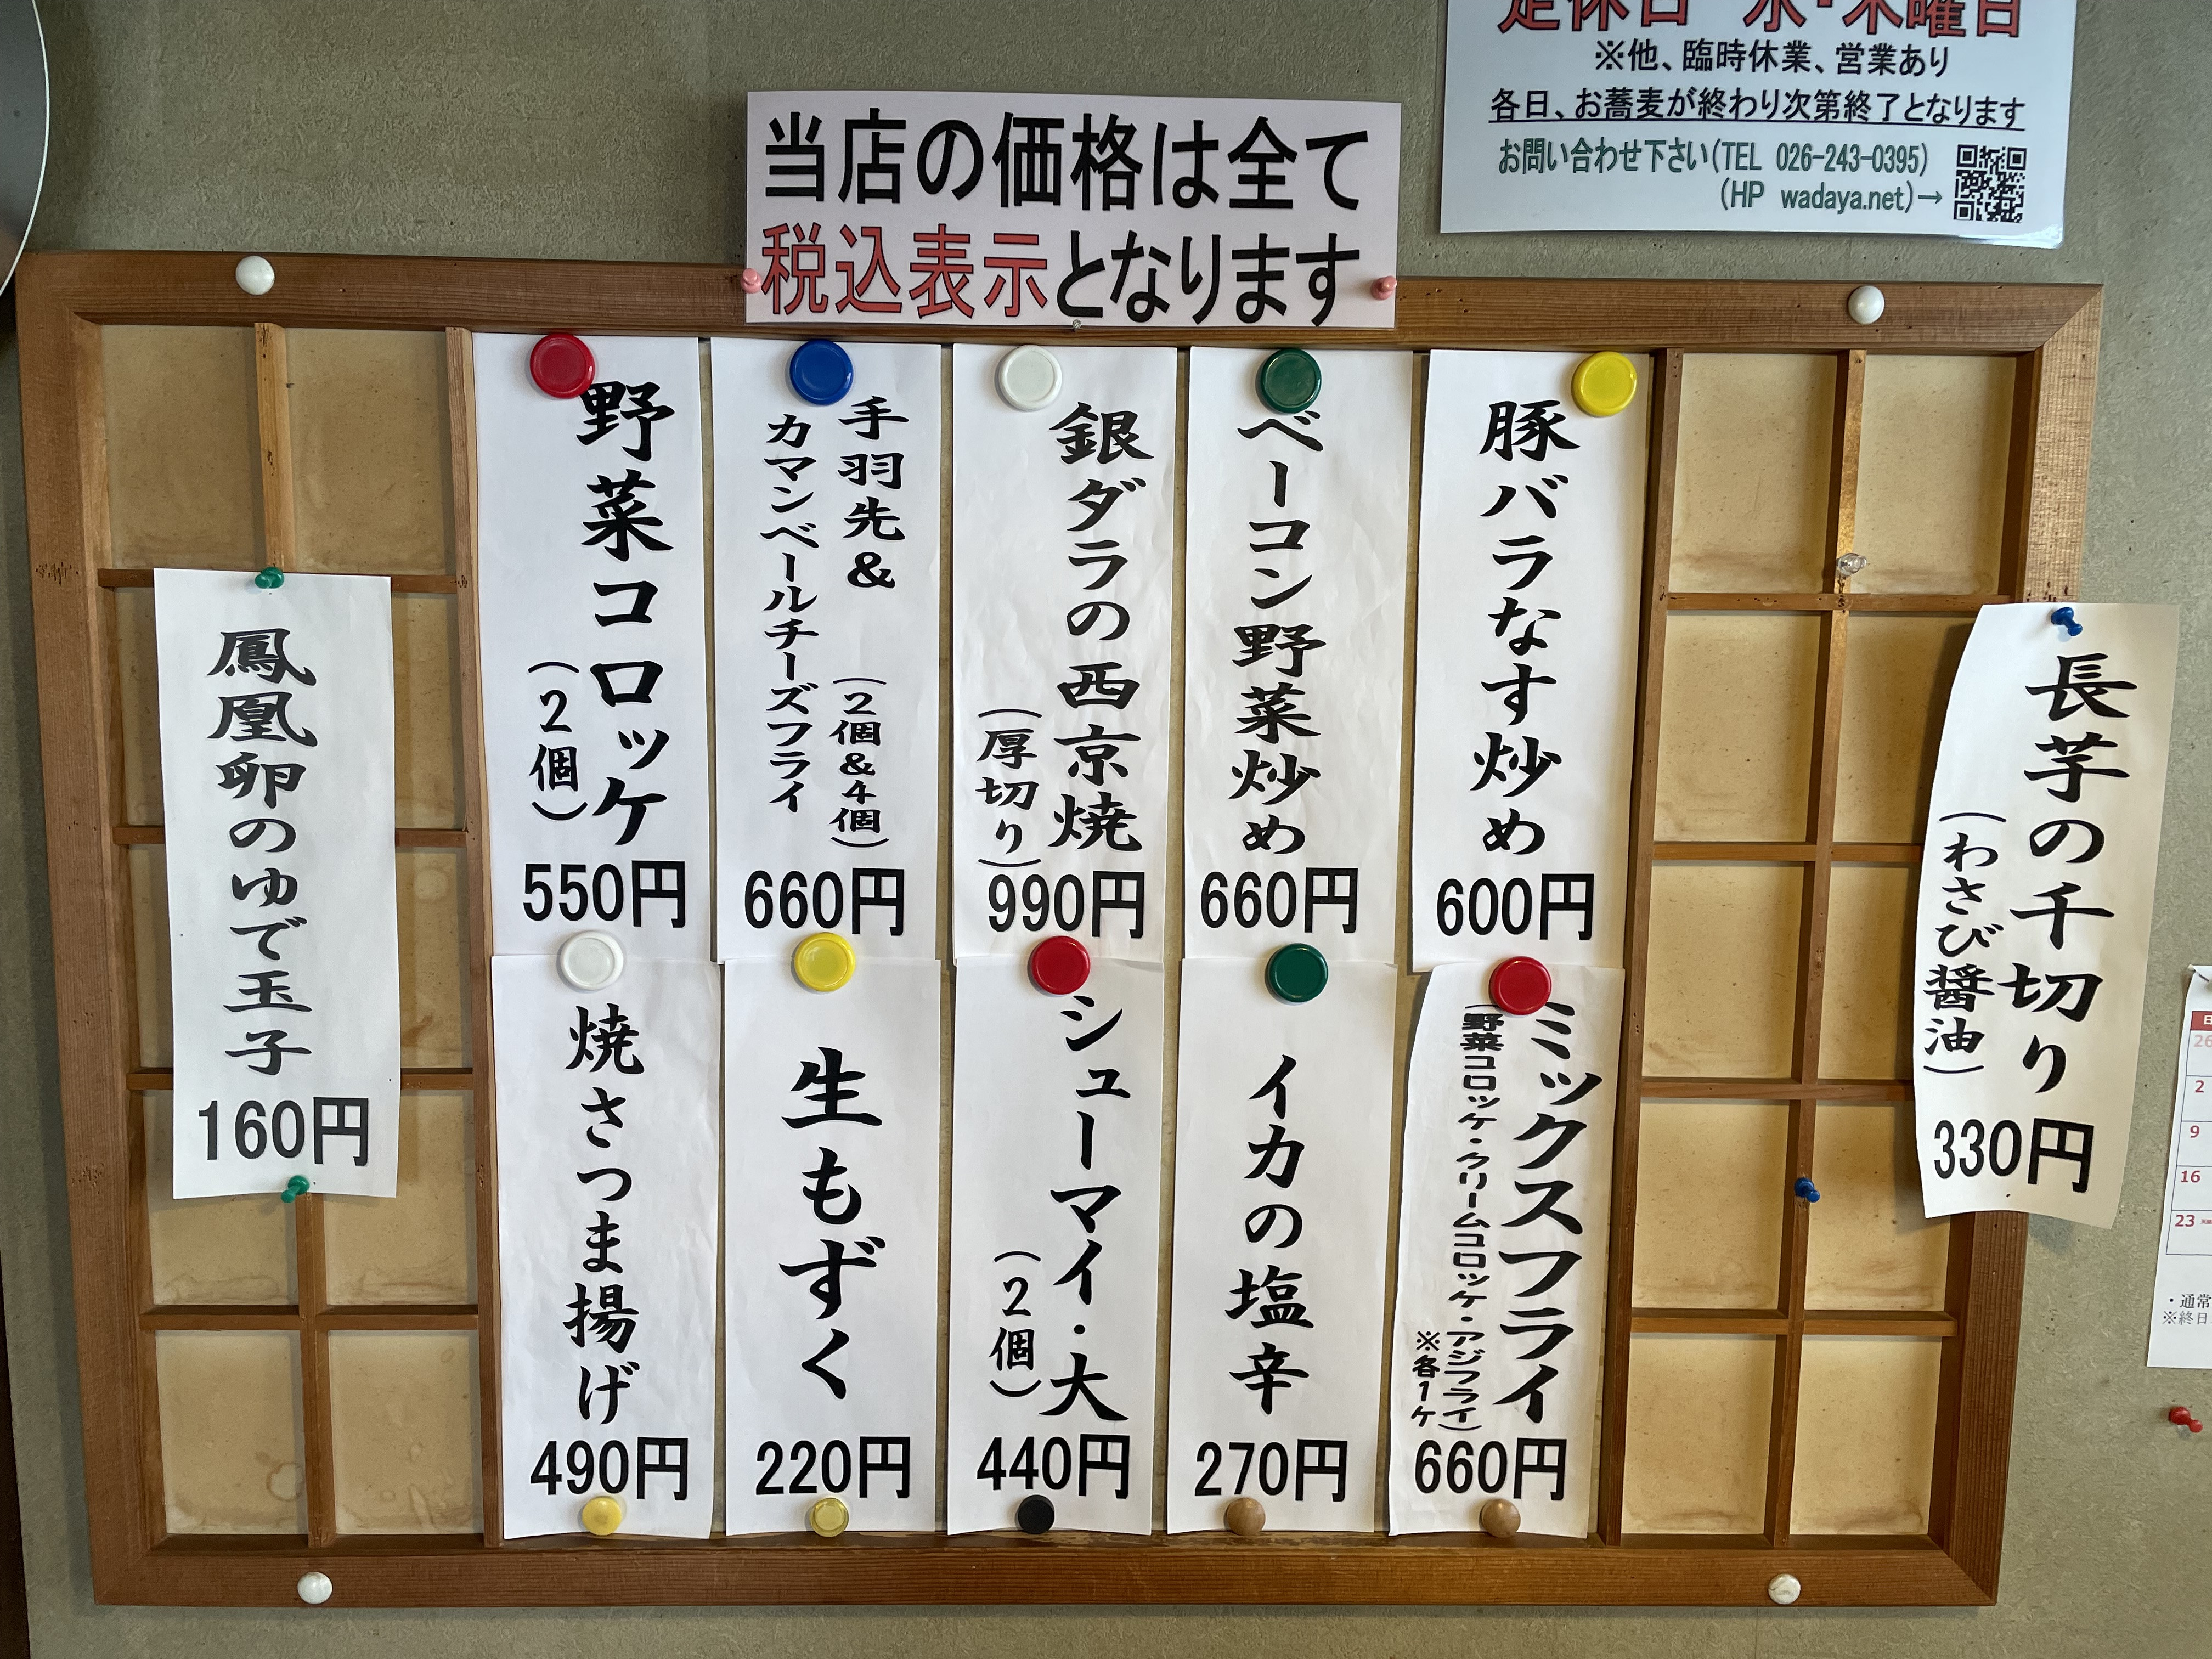 定休日 水・木曜日
※他、臨時休業、営業あり
各日、お蕎麦が終わり次第終了となります
お問い合わせ下さい(TEL 026-243-0395)
(HP wadaya.net)→
当店の価格は全て
税込表示となります
長芋の千切り
(わさび醤油)
330円
豚バラなす炒め
600円
ベーコン野菜炒め
660円
銀ダラの西京焼
(厚切り)
990円
手羽先&
(2個&4個)
カマンベールチーズフライ
660円
野菜コロッケ
(2個)
550円
ミックスフライ
(野菜コロッケ・クリームコロッケ・アジフライ)
※各1ヶ
660円
イカの塩辛
270円
シューマイ・大
(2個)
440円
生もずく
220円
焼さつま揚げ
490円
鳳凰卵のゆで玉子
160円
日
26
2
9
16
23
・通常
※終日